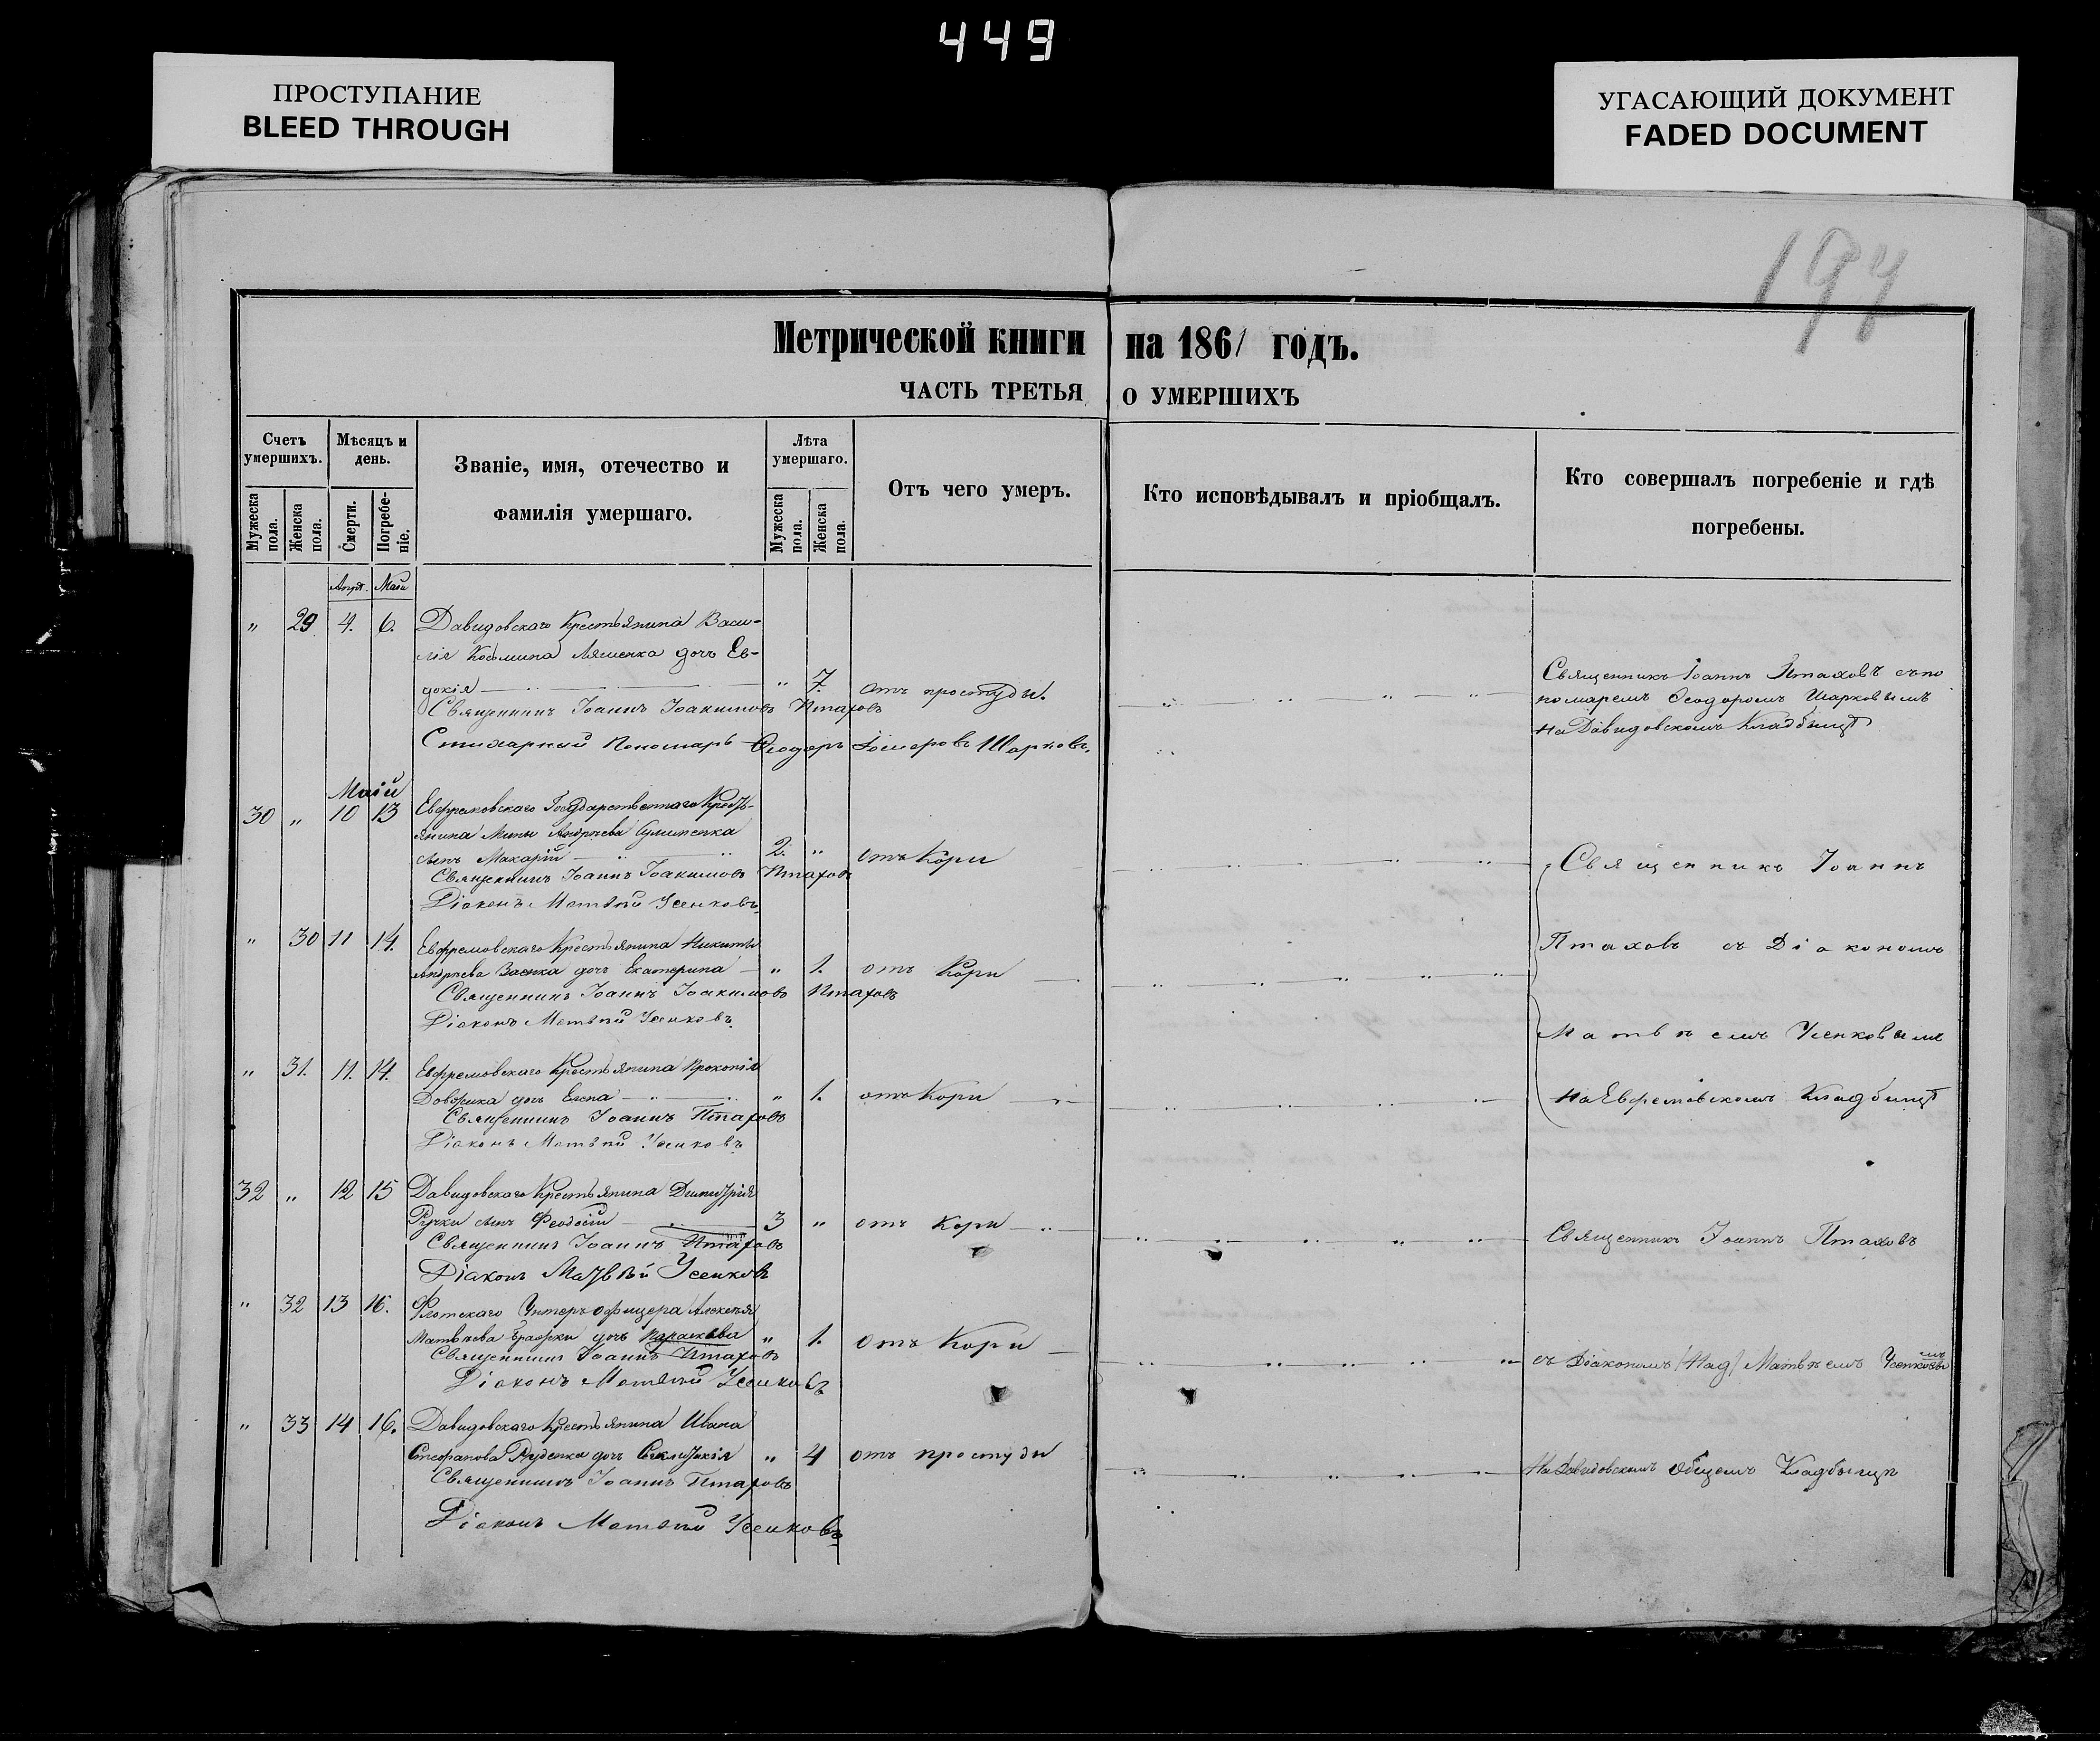 449
ПРОСТУПАНИЕ
BLEED THROUGH
УГАСАЮЩИЙ ДОКУМЕНТ
FADED DOCUMENT
Метрической книги на 1861 годъ.
ЧАСТЬ ТРЕТЬЯ О УМЕРШИХЪ
Счетъ умершихъ.
Мѣсяцъ и день.
Званіе, имя, отечество и фамилія умершаго.
Лѣта умершаго.
Отъ чего умеръ.
Кто исповѣдывалъ и пріобщалъ.
Кто совершалъ погребеніе и гдѣ погребены.
Мужеска пола.
Женска пола.
Смерти.
Погребеніе.
Мужеска пола.
Женска пола.
Маія
„ 29 4. 6. Давидовскаго Крестьянина Васи-
лія Косьмина Ляшенка дочь Ев-
докія „ 7. отъ простуды.
Священникъ Іоаннъ Іоакимовъ Птаховъ
Стихарный Пономарь Ѳеодоръ Шарковъ.
Священникъ Іоаннъ Птаховъ съ по
номаремъ Ѳеодоромъ Шарковымъ
на Давидовскомъ Кладбищѣ
Маій
30 „ 10 13 Государственнаго Кресть-
янина Мины Андрѣева
сынъ Макарій 2. „ отъ Кори
Священникъ Іоаннъ Іоакимовъ Птаховъ
Діаконъ Матвѣй Усенковъ.
„ 30 11 14. Ефремовскаго Крестьянина Никиты
Андрѣева Заенка дочь Екатерина „ 1. отъ Кори
Священникъ Іоаннъ Іоакимовъ Птаховъ
Діаконъ Матвѣй Усенковъ.
„ 31. 11. 14. Ефремовскаго Крестьянина Прокопія
дочь Елена „ 1. отъ Кори
Священникъ Іоаннъ Птаховъ
Діаконъ Матвѣй Усенковъ.
Священникъ Іоаннъ
Птаховъ съ Діакономъ
Матвѣемъ Усенковымъ
на Ефремовскомъ Кладбищѣ
32 „ 12 15 Давидовскаго Крестьянина Димитрія
сынъ Феодосій 3 „ отъ Кори
Священникъ Іоаннъ Птаховъ
Діаконъ Матвѣй Усенковъ
„ 32 13 16. Флотскаго Унтеръ-офицера Алексѣя
Матвѣева дочь Параскева „ 1. отъ Кори
Священникъ Іоаннъ Птаховъ
Діаконъ Матвѣй Усенковъ
„ 33 14 16. Давидовскаго Крестьянина Ивана
Стефанова Руденка дочь „ 4 отъ простуды
Священникъ Іоаннъ Птаховъ
Діаконъ Матвѣй Усенковъ
Священникъ Іоаннъ Птаховъ
съ Діакономъ Матвѣемъ Усенковымъ
на Давидовскомъ общемъ Кладбищѣ